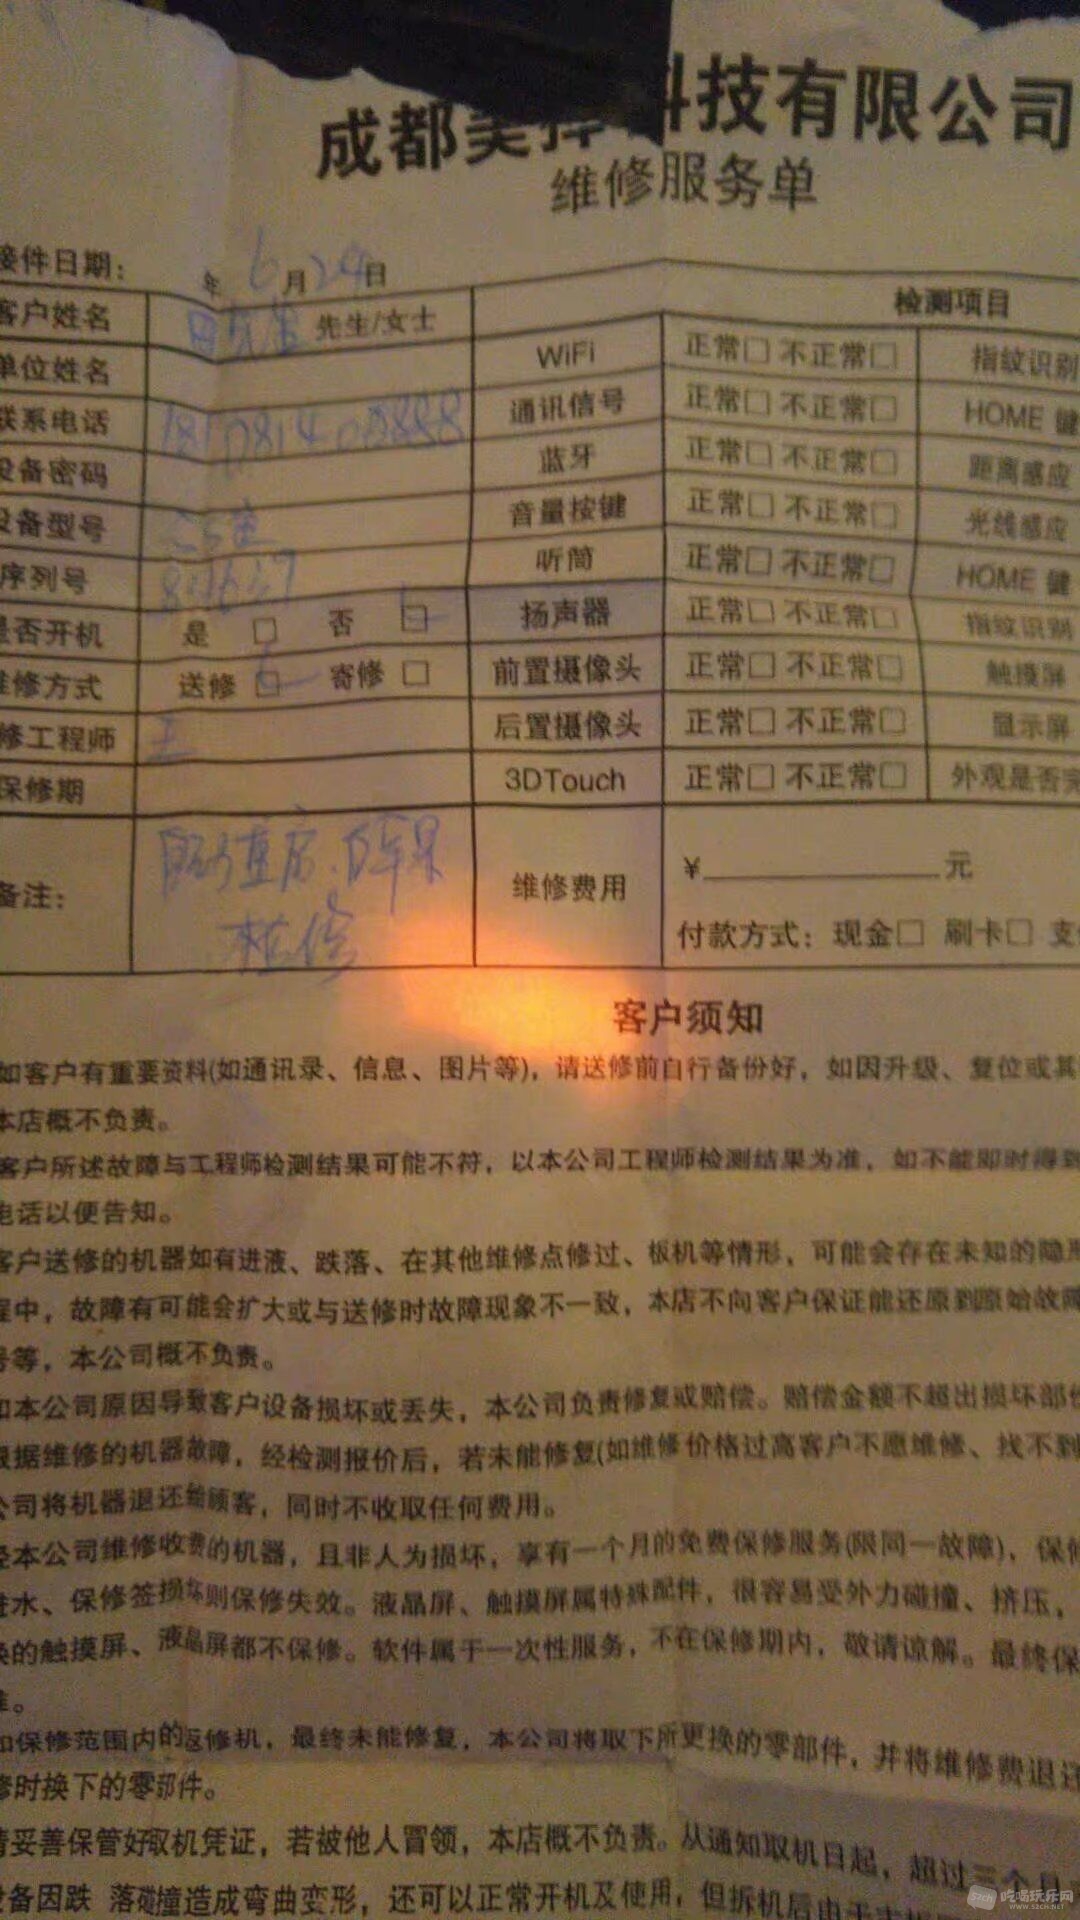 成都美 科技有限公司
维修服务单
接件日期: 年 6 月 24 日
检测项目
客户姓名 先生/女士
WiFi 正常□ 不正常□ 指纹识别
单位姓名
联系电话
通讯信号 正常□ 不正常□ HOME 键
设备密码
蓝牙 正常□ 不正常□ 距离感应
设备型号
音量按键 正常□ 不正常□ 光线感应
序列号
听筒 正常□ 不正常□ HOME 键
是否开机 是 □ 否 □
扬声器 正常□ 不正常□ 指纹识别
维修方式 送修 □ 寄修 □
前置摄像头 正常□ 不正常□ 触摸屏
修工程师 王
后置摄像头 正常□ 不正常□ 显示屏
保修期
3DTouch 正常□ 不正常□ 外观是否完
备注:
维修费用 ¥ 元
付款方式: 现金□ 刷卡□ 支
客户须知
如客户有重要资料(如通讯录、信息、图片等)，请送修前自行备份好，如因升级、复位或其
本店概不负责。
客户所述故障与工程师检测结果可能不符，以本公司工程师检测结果为准，如不能即时得到
电话以便告知。
客户送修的机器如有进液、跌落、在其他维修点修过、板机等情形，可能会存在未知的隐
程中，故障有可能会扩大或与送修时故障现象不一致，本店不向客户保证能还原到原始故障
号等，本公司概不负责。
如本公司原因导致客户设备损坏或丢失，本公司负责修复或赔偿。赔偿金额不超出损坏部
根据维修的机器故障，经检测报价后，若未能修复(如维修价格过高客户不愿维修、找不到
公司将机器退还给顾客，同时不收取任何费用。
经本公司维修收费的机器，且非人为损坏，享有一个月的免费保修服务(限同一故障)，保修
进水、保修签损坏则保修失效。液晶屏、触摸屏属特殊配件，很容易受外力碰撞、挤压，
换的触摸屏、液晶屏都不保修。软件属于一次性服务，不在保修期内，敬请谅解。最终保
准。
如保修范围内的返修机，最终未能修复，本公司将取下所更换的零部件，并将维修费退还
修时换下的零部件。
请妥善保管好取机凭证，若被他人冒领，本店概不负责。从通知取机日起，超过三个月
设备因跌 落碰撞造成弯曲变形，还可以正常开机及使用，但拆机后由于
吃喝玩乐网
WWW.52CH.NET